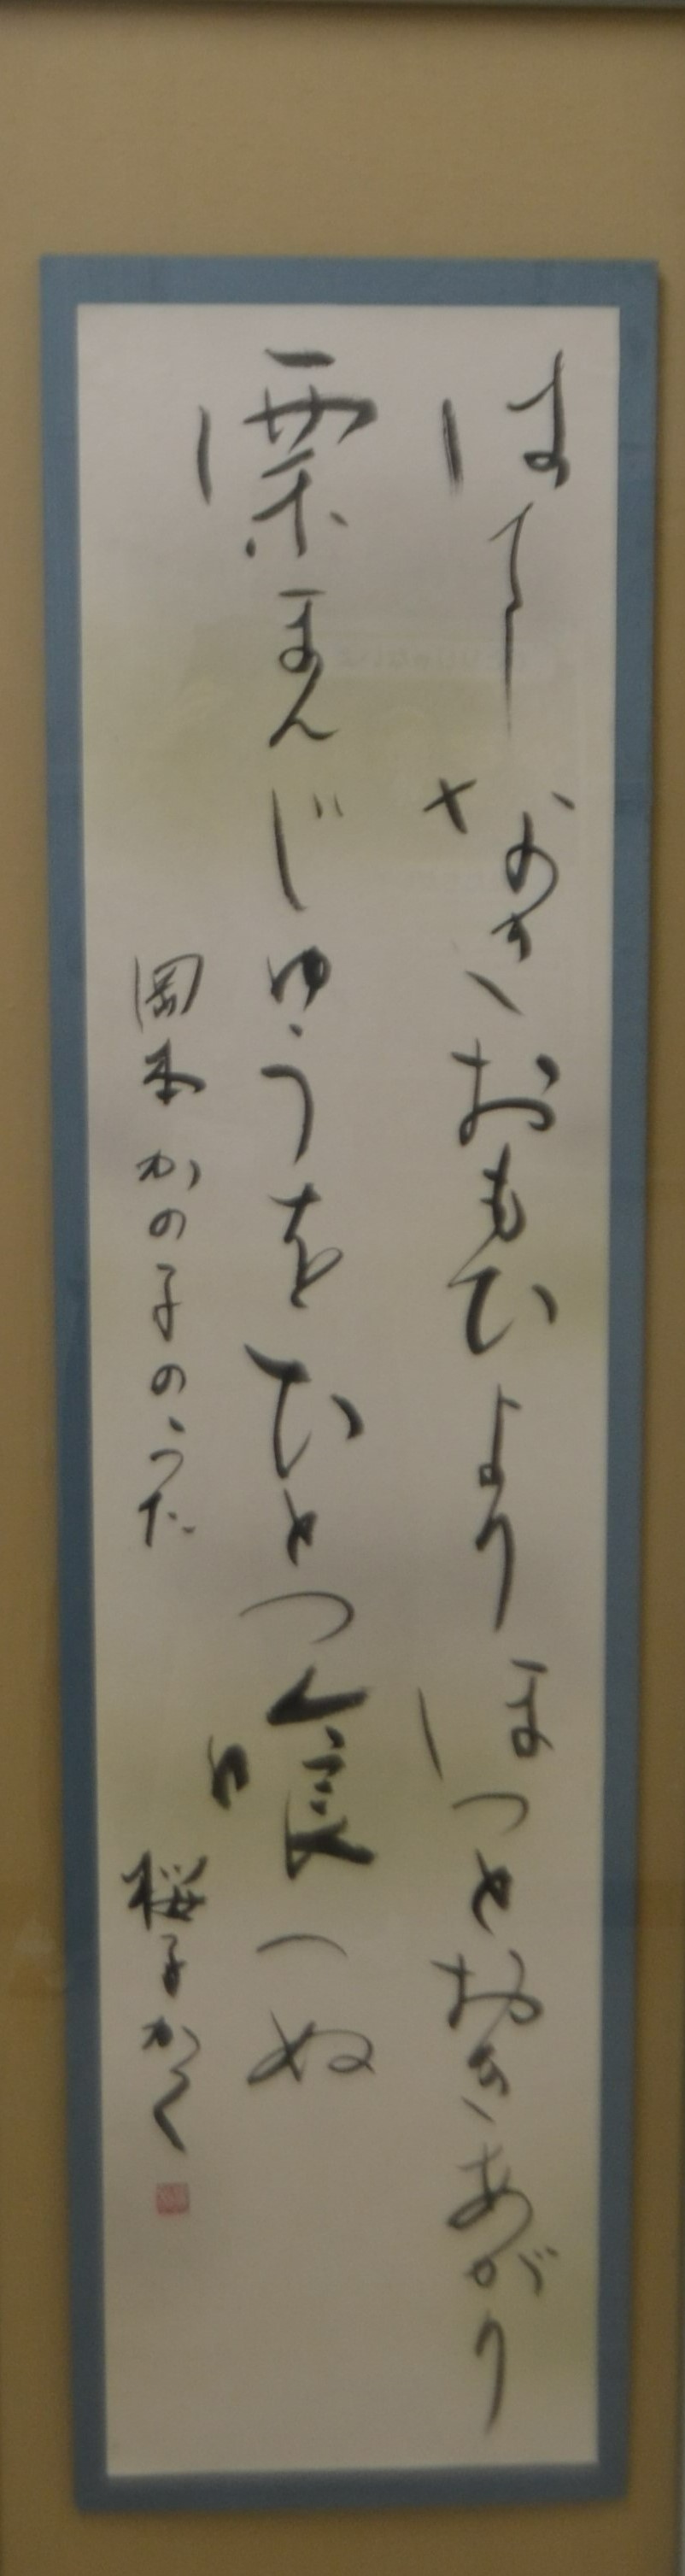 はてしなきおもひよりほつとおきあがり
栗まんじゆうをひとつ喰へぬ
岡本かの子のうた 桜子かく